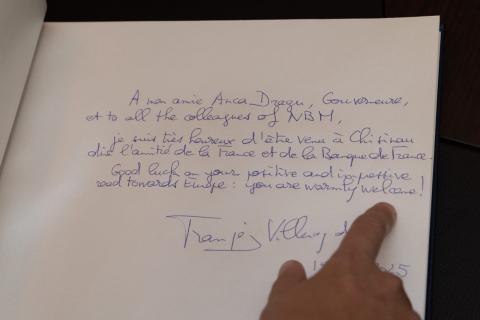 A mon amie Anca Dragu, Gouverneure,
et to all the colleagues of NBM,
je suis très heureux d'être venu à Chisinau
dire l'amitié de la France et de la Banque de France.
Good luck on your positive and impressive
road towards Europe : you are warmly welcome!
François Villeroy d